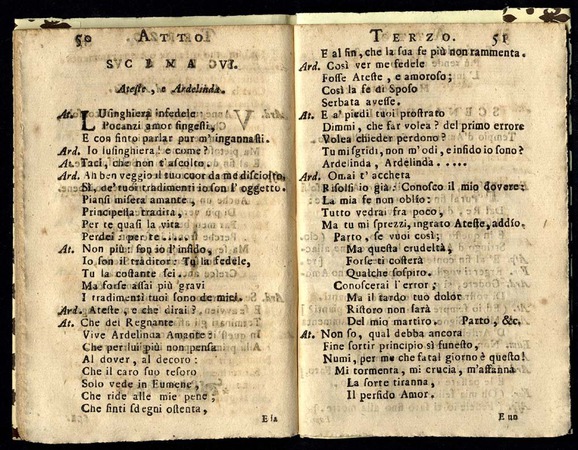 50 ATTO
SVCENA QVI.
Ateste, e Ardelinda.
At. LUsinghiera infedele
Pocanzi amor fingesti,
E con finto parlar pur m'ingannasti.
Ard. Io lusinghiera! e come?
At. Taci, che non t'ascolto.
Ard. Ah ben veggio il tuo cuor da me disciolto.
Sì, de' tuoi tradimenti io son l'oggetto.
Piansi misera amante,
Principessa tradita,
Per te quasi la vita
Perdei: per te.....
At. Non più: son io l'infido,
Io son il traditor: Tu la fedele,
Tu la costante sei..
Ma forse assai più gravi
I tradimenti tuoi sono de miei.
Ard. Ateste, e che dirai?
At. Che del Regnante
Vive Ardelinda Amante:
Che per lui più non pensa
Al dover, al decoro:
Che il caro suo tesoro
Solo vede in Eumene,
Che ride alle mie pene,
Che finti sdegni ostenta,
E la
TERZO. 51
E al fin, che la sua fe più non rammenta.
Ard. Così ver me fedele
Fosse Ateste, e amoroso;
Così la fe di Sposo
Serbata avesse.
At. E a' piedi tuoi prostrato
Dimmi, che far volea? del primo errore
Volea chieder perdono?
Tu mi sgridi, non m'odi, e infido io sono?
Ardelinda, Ardelinda.....
Ard. Omai t'accheta
Risolsi io già: Conosco il mio dovere:
La mia fe non oblio:
Tutto vedrai fra poco,
Ma tu mi sprezzi, ingrato Ateste, addio.
Parto, se vuoi così;
Ma questa crudeltà,
Forse ti costerà
Qualche sospiro.
Conoscerai l'error;
Ma il tardo tuo dolor
Ristoro non farà
Del mio martiro. Parto, &c.
At. Non so, qual debba ancora
Fine sortir principio sì funesto,
Numi, per me che fatal giorno è questo!
Mi tormenta, mi crucia, m'affanna
La sorte tiranna,
Il perfido Amor.
E un